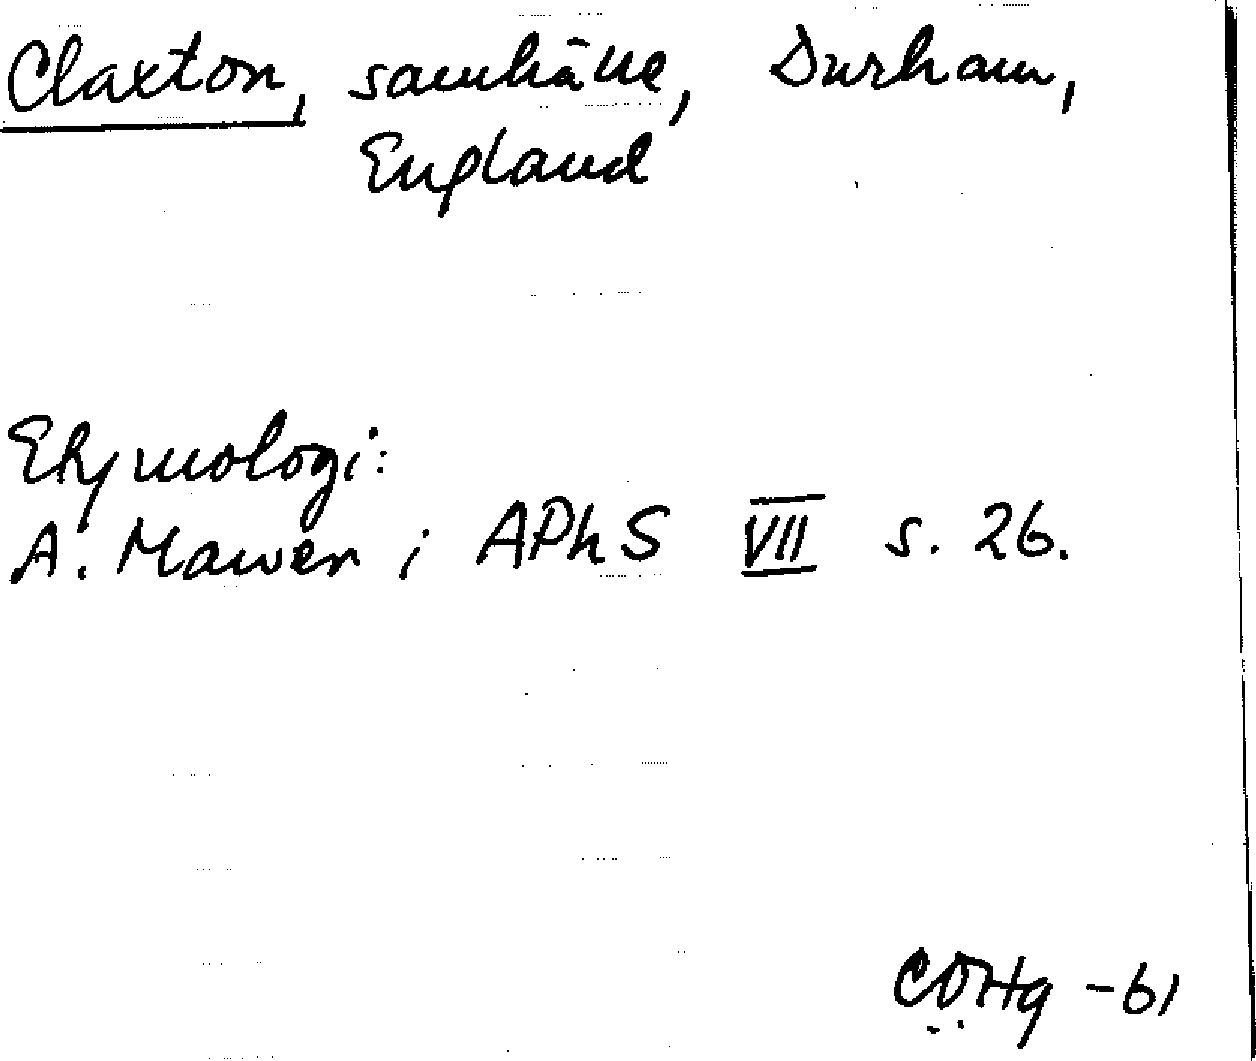 Claxton, samhälle, Durham,
England
Etymologi:
A. Mawer i APhS VII s. 26.
-61